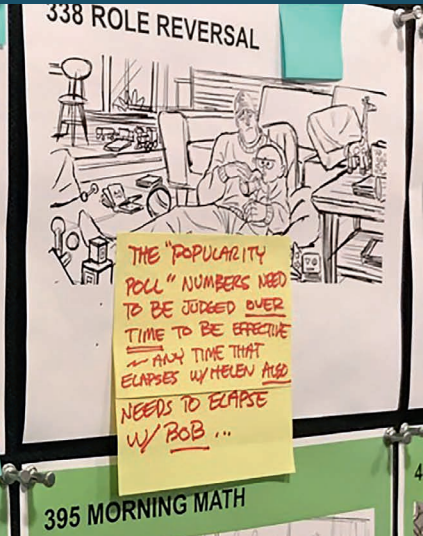 338 ROLE REVERSAL
THE "POPULARITY
POLL" NUMBERS NEED
TO BE JUDGED OVER
TIME TO BE EFFECTIVE
~ ANY TIME THAT
ELAPSES W/HELEN ALSO
NEEDS TO ELAPSE
W/ BOB ...
395 MORNING MATH
4